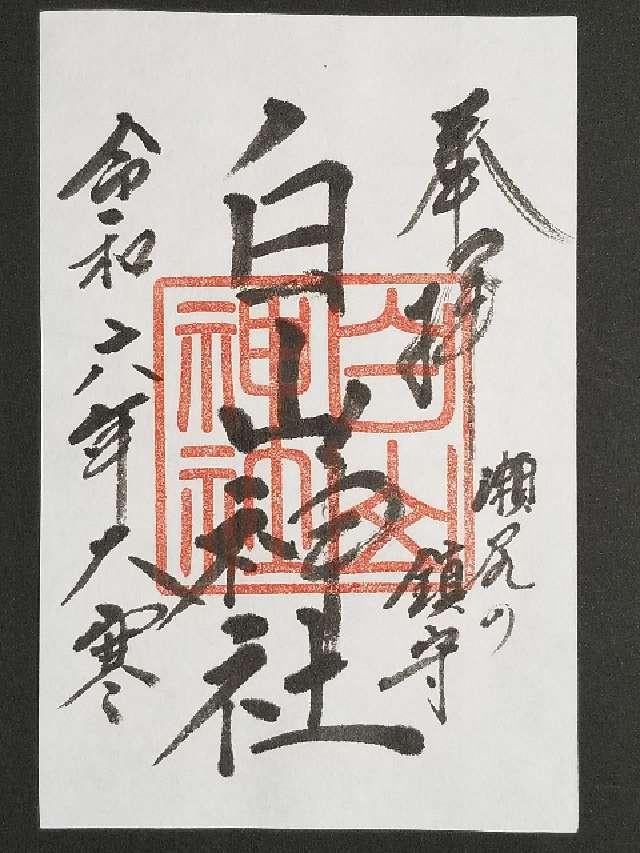 奉拝
瀬尻の
鎮守
白山神社
白山神社
令和六年大寒